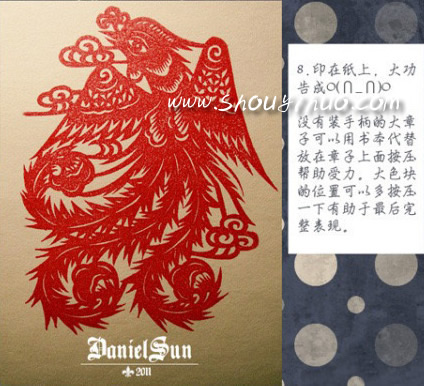 8.印在纸上，大功
告成o(∩_∩)o
没有装手柄的大章
子可以用书本代替
放在章子上面按压
帮助受力。大色块
的位置可以多按压
一下有助于最后完
整表现。
www.shouyihuo.com
DanielSun
2011